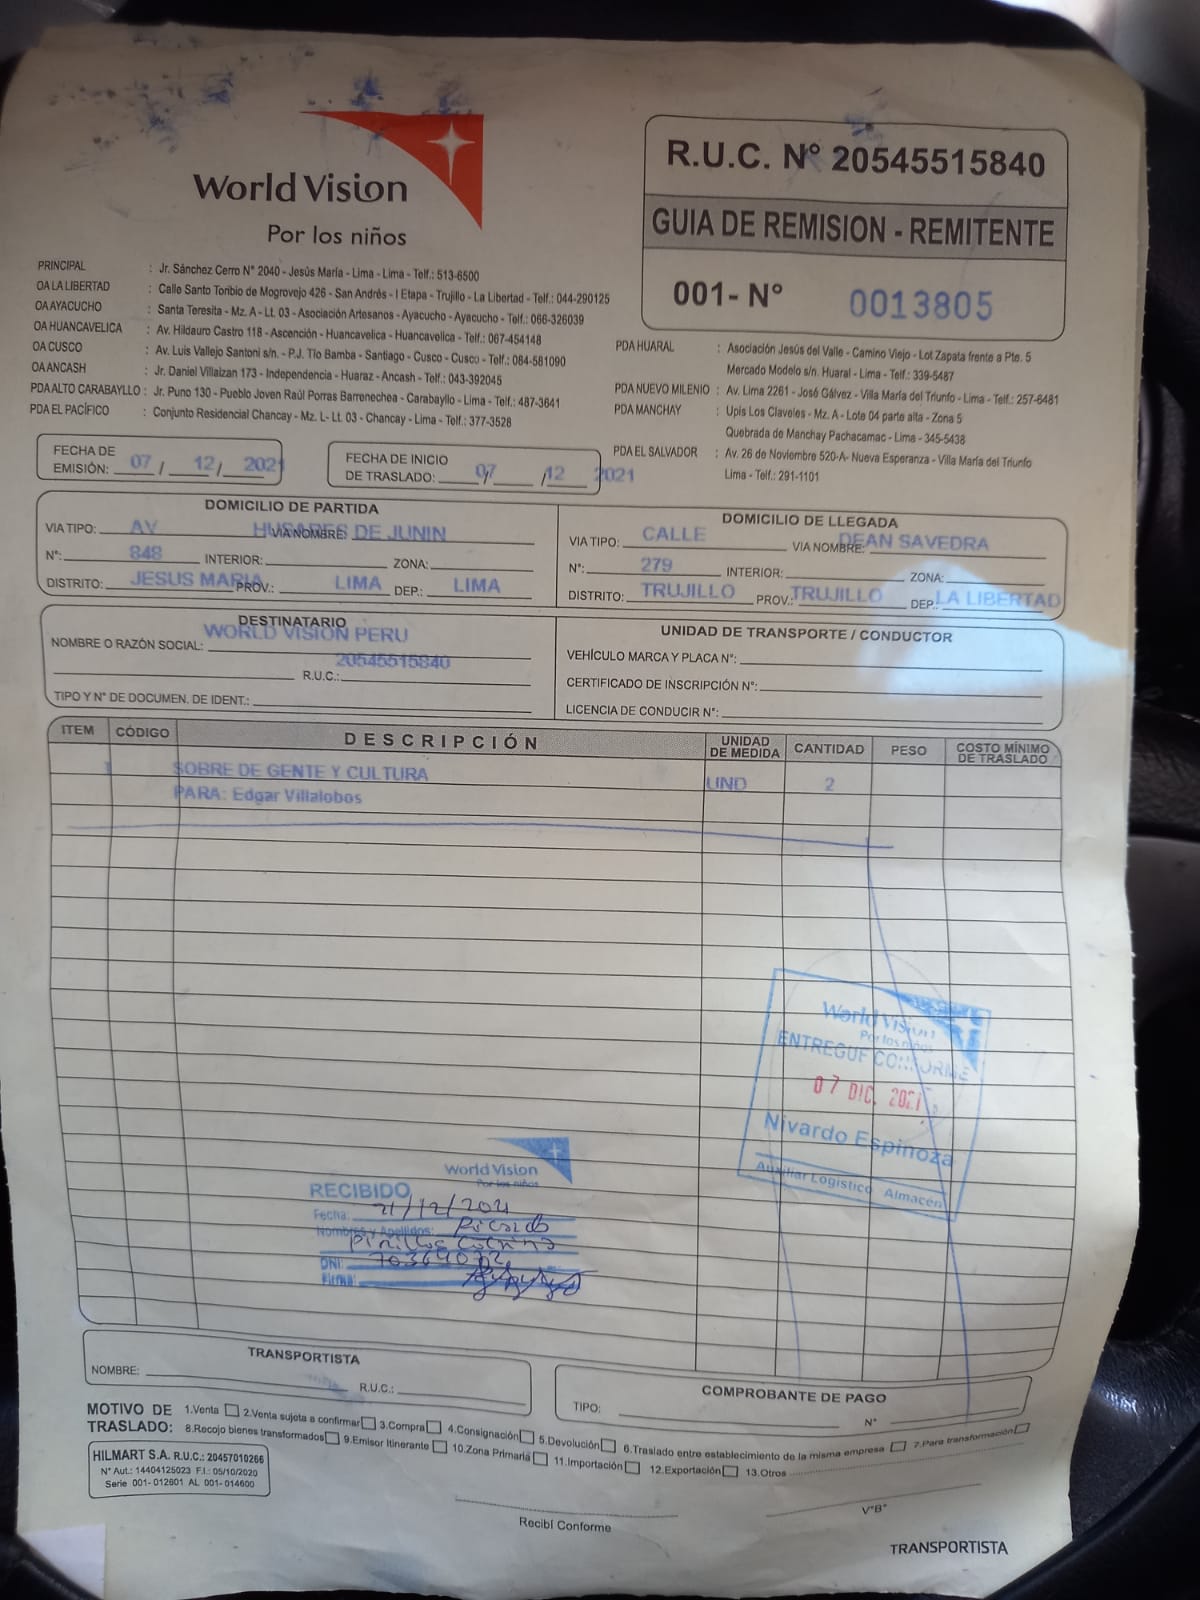 World Vision
Por los niños
R.U.C. N° 20545515840
GUIA DE REMISION - REMITENTE
001- N° 0013805
PRINCIPAL : Jr. Sánchez Cerro N° 2040 - Jesús María - Lima - Lima - Telf.: 513-6500
OA LA LIBERTAD : Calle Santo Toribio de Mogrovejo 426 - San Andrés - I Etapa - Trujillo - La Libertad - Telf.: 044-290125
OA AYACUCHO : Santa Teresita - Mz. A - Lt. 03 - Asociación Artesanos - Ayacucho - Ayacucho - Telf.: 066-326039
OA HUANCAVELICA : Av. Hildauro Castro 118 - Ascención - Huancavelica - Huancavelica - Telf: 067-454148
OA CUSCO : Av. Luis Vallejo Santoni s/n. - P.J. Tío Bamba - Santiago - Cusco - Cusco - Telf.: 084-581090
OA ANCASH : Jr. Daniel Villaizan 173 - Independencia - Huaraz - Ancash - Telf.: 043-392045
PDA ALTO CARABAYLLO : Jr. Puno 130 - Pueblo Joven Raúl Porras Barrenechea - Carabayllo - Lima - Telf.: 487-3641
PDA EL PACÍFICO : Conjunto Residencial Chancay - Mz. L- Lt. 03 - Chancay - Lima - Telf.: 377-3528
PDA HUARAL : Asociación Jesús del Valle - Camino Viejo - Lot Zapata frente a Pte. 5
Mercado Modelo s/n. Huaral - Lima - Telf.: 339-5487
PDA NUEVO MILENIO : Av. Lima 2261 - José Gálvez - Villa María del Triunfo - Lima - Telf.: 257-6481
PDA MANCHAY : Upis Los Claveles - Mz. A - Lote 04 parte alta - Zona 5
Quebrada de Manchay Pachacamac - Lima - 345-5438
PDA EL SALVADOR : Av. 26 de Noviembre 520-A- Nueva Esperanza - Villa María del Triunfo
Lima - Telf.: 291-1101
FECHA DE
EMISIÓN: 07 / 12 / 2021
FECHA DE INICIO
DE TRASLADO: 07 / 12 2021
DOMICILIO DE PARTIDA
VIA TIPO: AV VIA NOMBRE: HUSARES DE JUNIN
N°: 848 INTERIOR: ZONA:
DISTRITO: JESUS MARIA PROV.: LIMA DEP.: LIMA
DOMICILIO DE LLEGADA
VIA TIPO: CALLE VIA NOMBRE: DEAN SAVEDRA
N°: 279 INTERIOR: ZONA:
DISTRITO: TRUJILLO PROV.: TRUJILLO DEP.: LA LIBERTAD
DESTINATARIO
NOMBRE O RAZÓN SOCIAL: WORLD VISION PERU
R.U.C.: 20545515840
TIPO Y N° DE DOCUMEN. DE IDENT.:
UNIDAD DE TRANSPORTE / CONDUCTOR
VEHÍCULO MARCA Y PLACA N°:
CERTIFICADO DE INSCRIPCIÓN N°:
LICENCIA DE CONDUCIR N°:
ITEM CÓDIGO DESCRIPCIÓN UNIDAD DE MEDIDA CANTIDAD PESO COSTO MÍNIMO DE TRASLADO
1 SOBRE DE GENTE Y CULTURA UND 2
PARA: Edgar Villalobos
World Vision
Por los niños
ENTREGUE CONFORME
07 DIC. 2021
Nivardo Espinoza
Auxiliar Logistico Almacén
World Vision
Por los niños
RECIBIDO
Fecha: 21/12/2021
Nombres y Apellidos: Ricardo
Pinillos
DNI:
Firma:
TRANSPORTISTA
NOMBRE: R.U.C.:
COMPROBANTE DE PAGO
TIPO: N°
MOTIVO DE TRASLADO: 1.Venta 2.Venta sujeta a confirmar 3.Compra 4.Consignación 5.Devolución 6.Traslado entre establecimiento de la misma empresa 7.Para transformación
8.Recojo bienes transformados 9.Emisor Itinerante 10.Zona Primaria 11.Importación 12.Exportación 13.Otros
HILMART S.A. R.U.C.: 20457010266
N° Aut.: 14404125023 F.I.: 05/10/2020
Serie 001- 012601 AL 001- 014600
Recibí Conforme
V°B°
TRANSPORTISTA